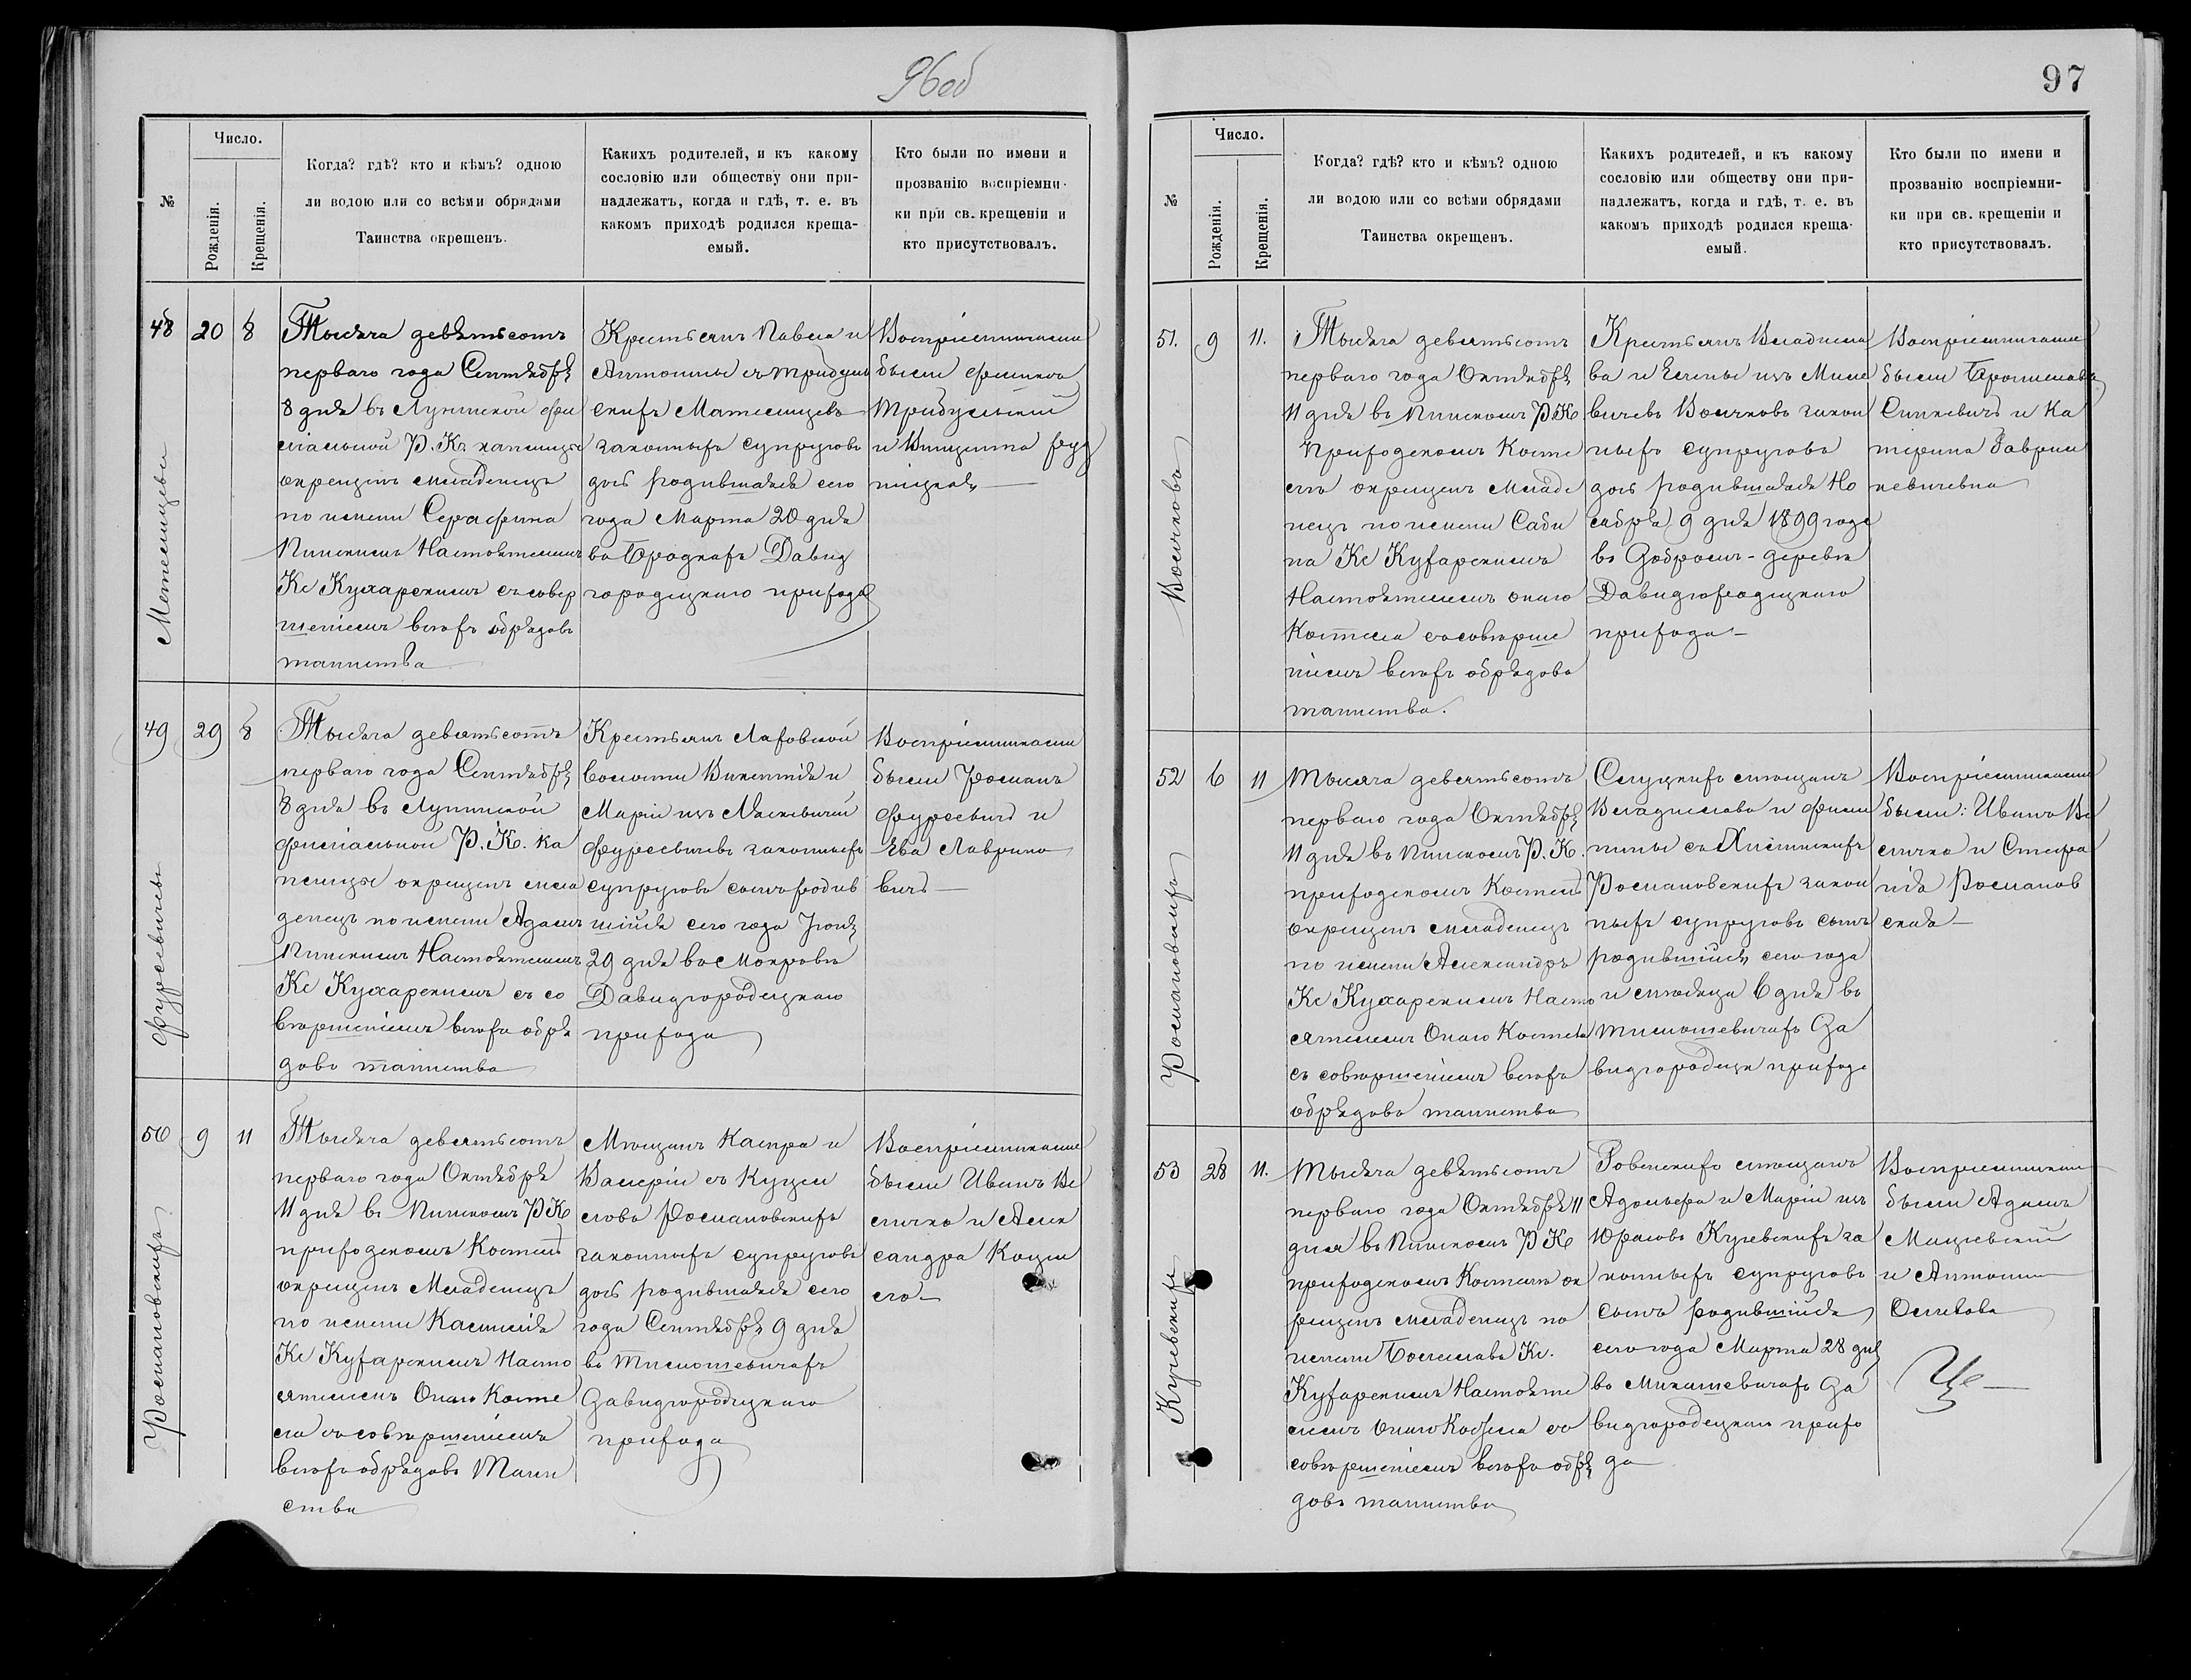 96об
№
Число.
Рожденія.
Крещенія.
Когда? гдѣ? кто и кѣмъ? одною
ли водою или со всѣми обрядами
Таинства окрещенъ.
Какихъ родителей, и къ какому
сословію или обществу они при-
надлежатъ, когда и гдѣ, т. е. въ
какомъ приходѣ родился креща-
емый.
Кто были по имени и
прозванію воспріемни-
ки при св. крещеніи и
кто присутствовалъ.
48
20
8
Тысяча девятьсотъ
перваго года Сентября
8 дня въ Лунинской фи
ліальной Р. К. каплицѣ
окрещенъ младенецъ
по имени Серафина
Пинскимъ Настоятелемъ
Кс Кухарскимъ съ совер
шеніемъ всѣхъ обрядовъ
таинства
Крестьянъ Павла и
Антонины съ Трибуль
скихъ
законныхъ супруговъ
дочь родившаяся сего
года Марта 20 дня
въ Бродкахъ Давид
городецкаго прихода
Воспріемниками
были Феликсъ
Трибульскій
и Винцента
49
29
8
Тысяча девятьсотъ
перваго года Сентября
8 дня въ Лунинской
филіальной Р. К. ка
плицѣ окрещенъ мла
денецъ по имени Адамъ
Пинскимъ Настоятелемъ
Кс Кухарскимъ съ со
вершеніемъ всѣхъ обря
довъ таинства
Крестьянъ Лаховской
волости Викентія и
Маріи изъ
Фурсевичевъ законныхъ
супруговъ сынъ родив
шійся сего года Іюня
29 дня въ Мокровѣ
Давидгородецкаго
прихода
Фурсевичъ
Воспріемниками
были Романъ
Фурсевичъ и
Ева Лаврино
вичъ
50
9
11
Романовскихъ
Тысяча девятьсотъ
перваго года Октября
11 дня въ Пинскомъ Р К
приходскомъ Костелѣ
окрещенъ Младенецъ
по имени Камилія
Кс Кухарскимъ Насто
ятелемъ Онаго Косте
ла съ совершеніемъ
всѣхъ обрядовъ Таин
ства
Мѣщанъ Каспра и
Валеріи съ
Романовскихъ
законныхъ супруговъ
дочь родившаяся сего
года Сентября 9 дня
въ Тимошевичахъ
Давидгородецкаго
прихода
Воспріемниками
были Иванъ Ве
личко и Алек
сандра
97
№
Число.
Рожденія.
Крещенія.
Когда? гдѣ? кто и кѣмъ? одною
ли водою или со всѣми обрядами
Таинства окрещенъ.
Какихъ родителей, и къ какому
сословію или обществу они при-
надлежатъ, когда и гдѣ, т. е. въ
какомъ приходѣ родился креща-
емый.
Кто были по имени и
прозванію воспріемни-
ки при св. крещеніи и
кто присутствовалъ.
51.
9
11.
Тысяча девятьсотъ
перваго года Октября
11 дня въ Пинскомъ Р. К
Приходскомъ Косте
лѣ окрещенъ Младе
нецъ по имени Саби
на Кс Кухарскимъ
Настоятелемъ онаго
Костела со соверше
ніемъ всѣхъ обрядовъ
таинства.
Крестьянъ Владисла
ва и Елены изъ
Волчковъ закон
ныхъ супруговъ
дочь родившаяся Но
ября 9 дня 1899 года
въ Добромъ-деревнѣ
Давидгородецкаго
прихода
Волчковъ
Воспріемниками
были Брониславъ
Синкевичъ и Ка
терина Гаврил
кевичевна
52
6
11
Романовскихъ
Тысяча девятьсотъ
перваго года Октября
11 дня въ Пинскомъ Р. К.
приходскомъ Костелѣ
окрещенъ младенецъ
по имени Александръ
Кс Кухарскимъ Насто
ятелемъ Онаго Костела
съ совершеніемъ всѣхъ
обрядовъ таинства
Слуцкихъ мѣщанъ
Владислава и Фили
пины съ
Романовскихъ закон
ныхъ супруговъ сынъ
родившійся сего года
и мѣсяца 6 дня въ
Тимошевичахъ Да
видгородецк прихода
Воспріемниками
были: Иванъ Ве
личко и Стефа
нія Романов
ская
53
28
11.
Кучевскихъ
Тысяча девятьсотъ
перваго года Октября 11
дня въ Пинскомъ Р К
приходскомъ Костелѣ ок
рещенъ младенецъ по
имени Болеславъ Кс.
Кухарскимъ Настояте
лемъ онаго Костела со
совершеніемъ всѣхъ обря
довъ таинства
Ровенскихъ мѣщанъ
Адольфа и Маріи изъ
Юрасовъ Кучевскихъ за
конныхъ супруговъ
сынъ родившійся
сего года Марта 28 дня
въ Микашевичахъ Да
видгородецкаго прихо
да
Воспріемниками
были Адамъ
Мацѣевскій
и Антонина